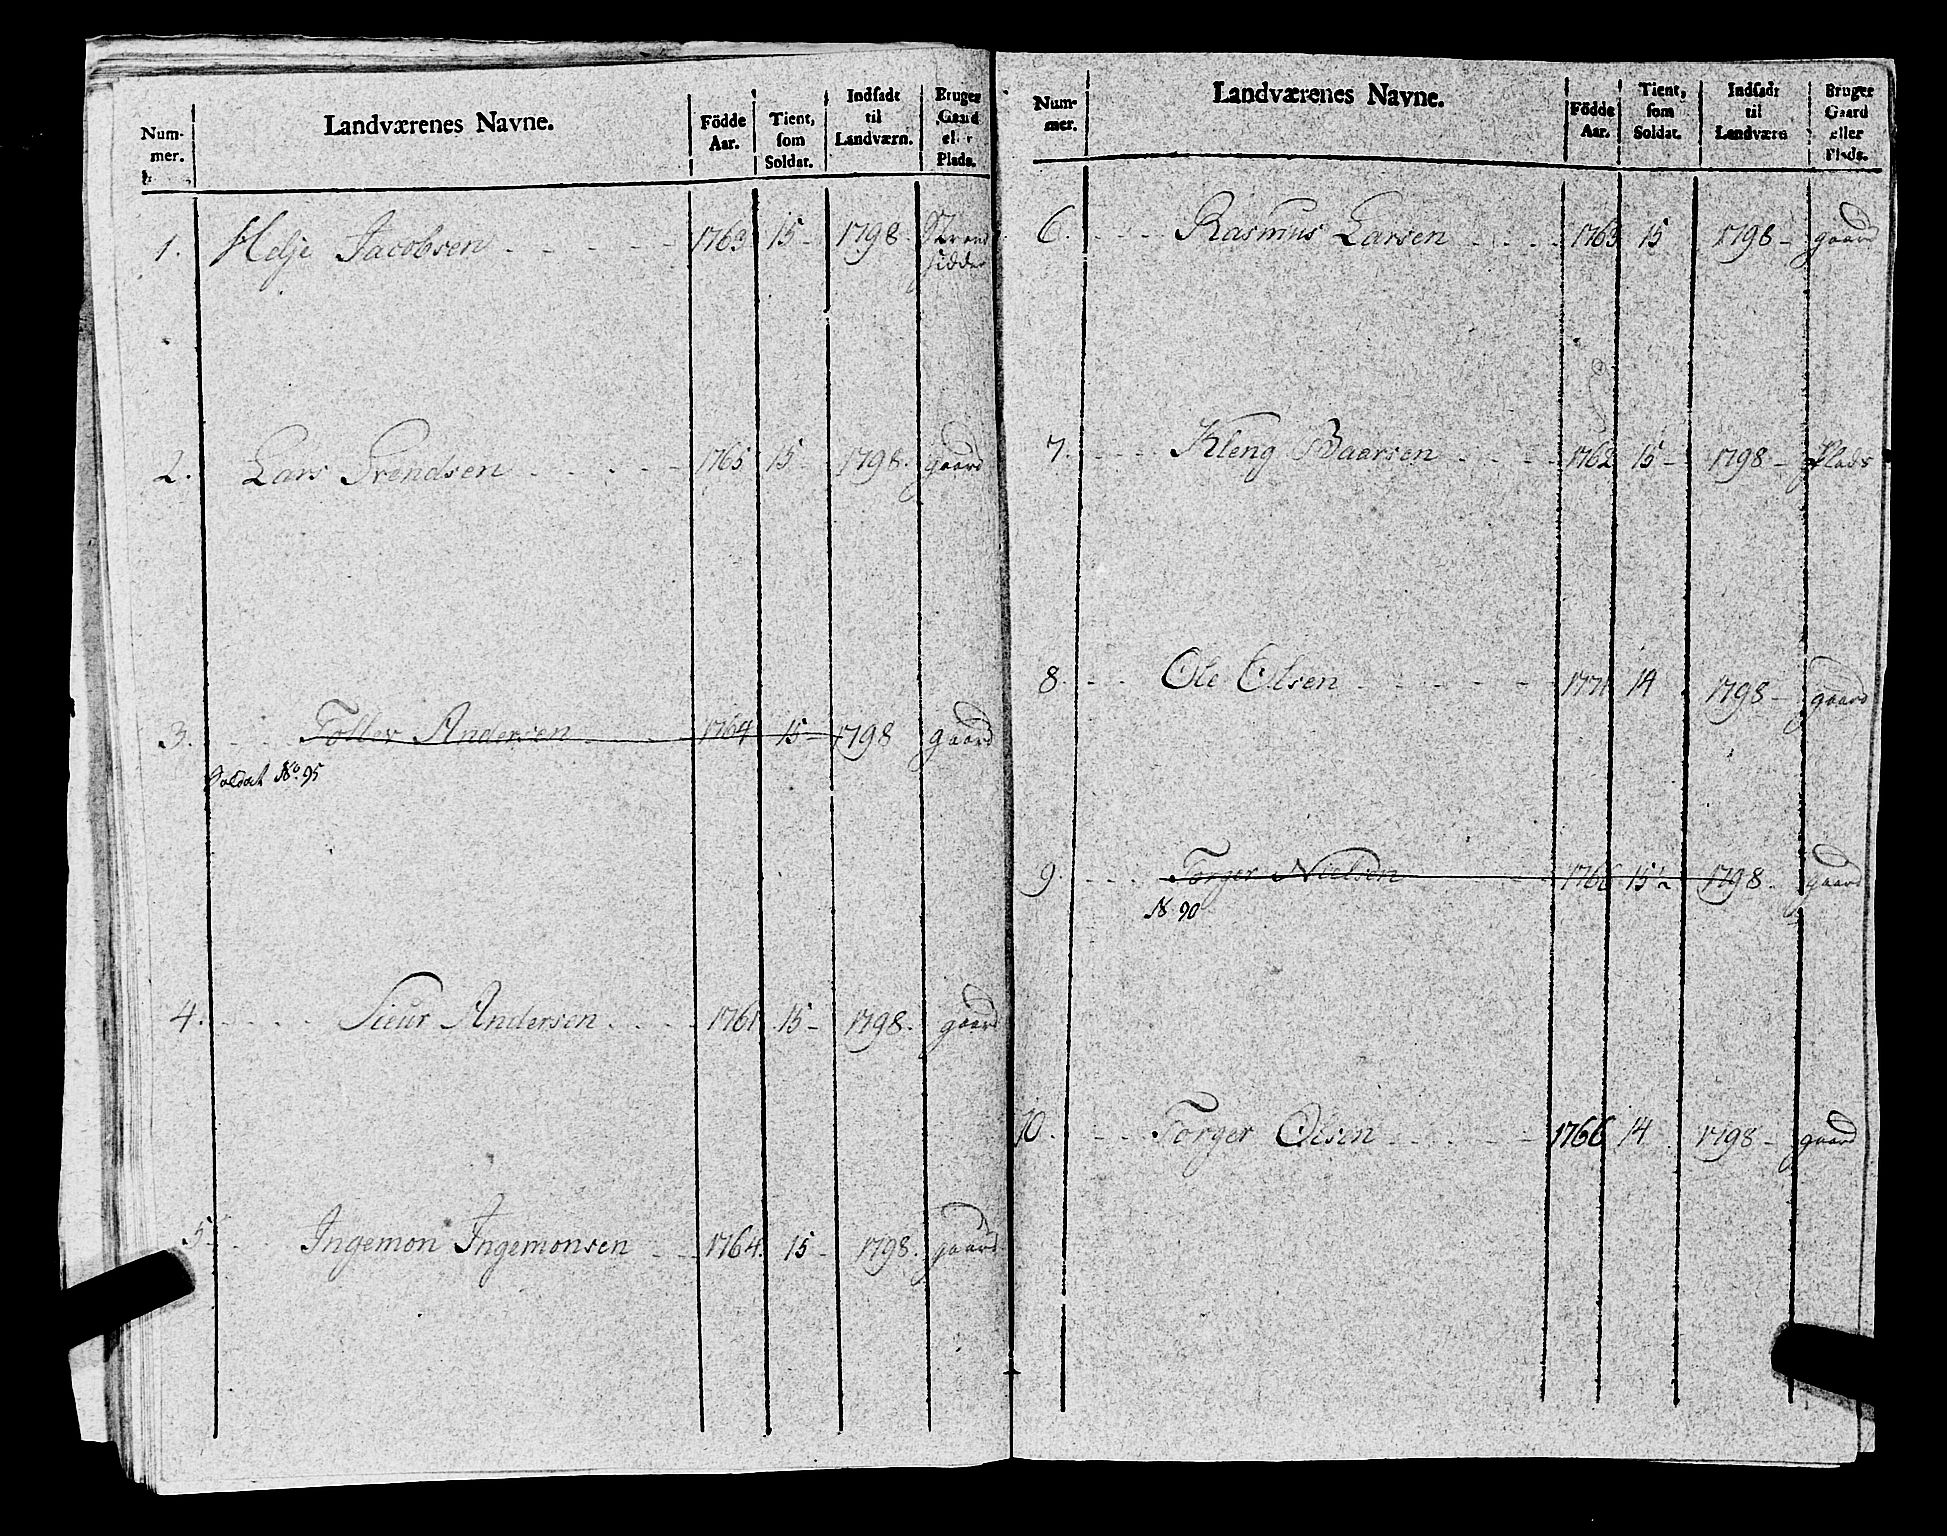 Num-
mer.
Landværenes Navne.
Födde
Aar.
Tient,
som
Soldat.
Indsadt
til
Landværn.
Bruger
Gaard
eller
Plads.
1. Helje Jacobsen 1763 15 - 1798. Strand
sidder
2. Lars Trendsen 1765 15 - 1798. gaard
3. Tollev Andersen 1764 15 - 1798 gaard
Soldat No. 95
4. Sieur Andersen 1761 15 - 1798. gaard
5 Ingemon Ingemonsen 1764. 15 - 1798. gaard
Num-
mer.
Landværenes Navne.
Födde
Aar.
Tient,
som
Soldat.
Indsadt
til
Landværn
Bruger
Gaard
eller
Plads.
6. Rasmus Larsen 1763 15 1798 - gaard
7. Kleng Baarsen 1762 15 - 1798 - Plads
8. Ole Olsen 1771 14 1798 - gaard
9. Torger Nielsen 1766 15 1/2 1798. gaard
N 90
10. Torger Olsen 1766 14 1798 - gaard